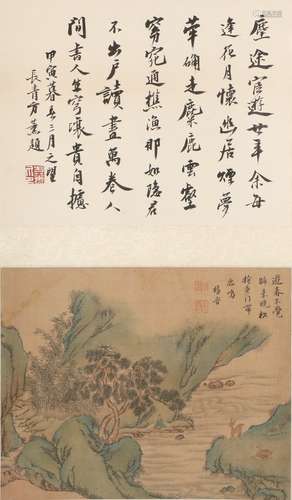 塵途宦遊廿年余每
逢花月懷幽居煙夢
華碉走麋鹿雲壑
窈窕通樵漁那如隱君
不出戶讀盡萬卷人
間書人生窮瀼貴自摅
甲寅暮春三月之望
長青方薰題
遊春不覺
歸來晚松
掩柴門帶
鳥鳴